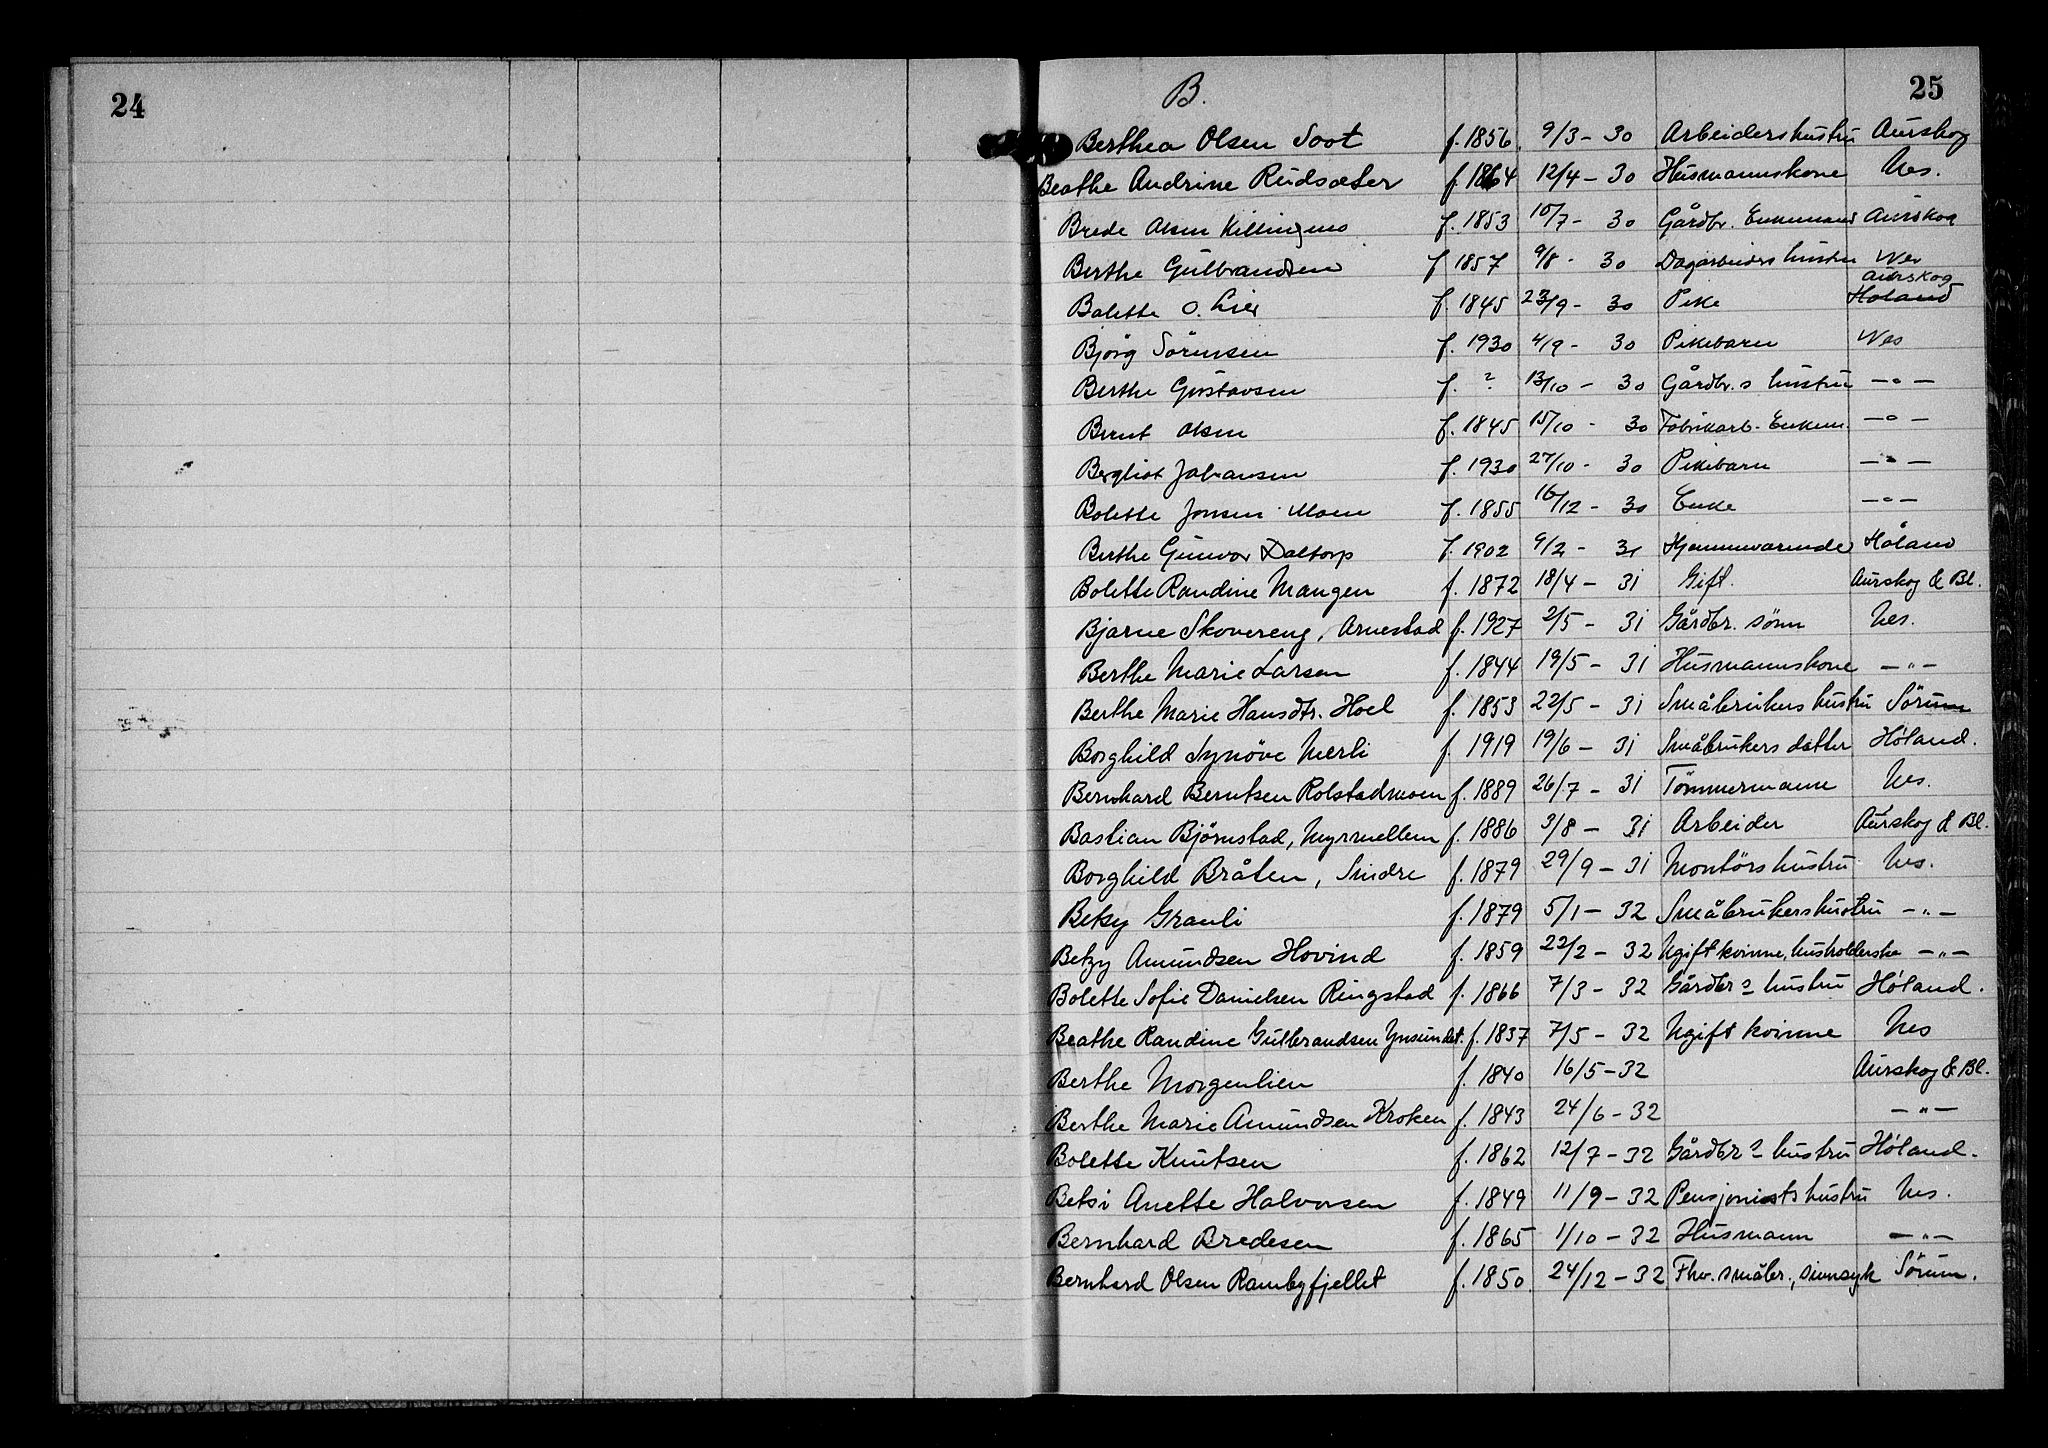 24
25
B.
Berthea Olsen Soot f. 1856 9/3 - 30 Arbeidershustru Aurskog
Beathe Andrine Rudsæter f. 1864 12/4 - 30 Husmannskone Nes.
Brede Olsen Killingmo f. 1853 10/7 - 30 Gårdbr. Enkemand Aurskog
Berthe Gulbrandsen f 1857 9/8 - 30 Dagarbeiders hustru Nes
Bolette O. Lier f. 1845 23/9 - 30 Pike Aurskog Høland
Bjørg Sørensen f. 1930 4/9 - 30 Pikebarn Nes
Berthe Gustavsen f. ? 13/10 - 30 Gårdbr.s hustru -"-
Bernt Olsen f. 1845 15/10 - 30 Fabrikarb. Enkem. -"-
Bergliot Johansen f. 1930 27/10 - 30 Pikebarn -"-
Bolette Jonsen Moen f. 1855 16/12 - 30 Enke -"-
Berthe Gunvor Daltorp f. 1902 9/2 - 31 Hjemmeværende Høland
Bolette Randine Mangen f. 1872 18/4 - 31 Gift. Aurskog & Bl.
Bjarne Skovereng, Arnestad f. 1927 2/5 - 31 Gårdbr. sønn Nes.
Berthe Marie Larsen f. 1844 19/5 - 31 Husmannskone -"-
Berthe Marie Hansdtr. Hoel f. 1853 22/5 - 31 Småbrukers hustru Sörum
Borghild Synöve Merli f. 1919 19/6 - 31 Småbrukers datter Höland.
Bernhard Berntsen Rolstadmoen f. 1889 26/7 - 31 Tömmermann Nes.
Bastian Björnstad, Myrmellem f. 1886 3/8 - 31 Arbeider Aurskog & Bl.
Borghild Bråten, Sindre f. 1879 29/9 - 31 Montörs hustru Nes.
Betsy Granli f. 1879 5/1 - 32 Småbrukershustru -"-
Betzy Amundsen Hovind f. 1859 22/2 - 32 Ugift kvinne, husholderske -"-
Bolette Sofie Danielsen Ringstad f. 1866 7/3 - 32 Gårdbr s hustru Höland.
Beathe Randine Gulbrandsen Ynsundet. f. 1837 7/5 - 32 Ugift kvinne Nes
Berthe Morgenlien f. 1840 16/5 - 32 Aurskog & Bl.
Berthe Marie Amundsen Kroken f. 1843 24/6 - 32 -"-
Bolette Knutsen f. 1862 12/7 - 32 Gårdbr s hustru Höland.
Betsi Anette Halvorsen f. 1849 11/9 - 32 Pensjonists hustru Nes.
Bernhard Bredesen f. 1865 1/10 - 32 Husmann -"-
Bernhard Olsen Rambyfjellet f. 1850. 24/12 - 32 Fhv. småbr., sinnsyk Sörum.